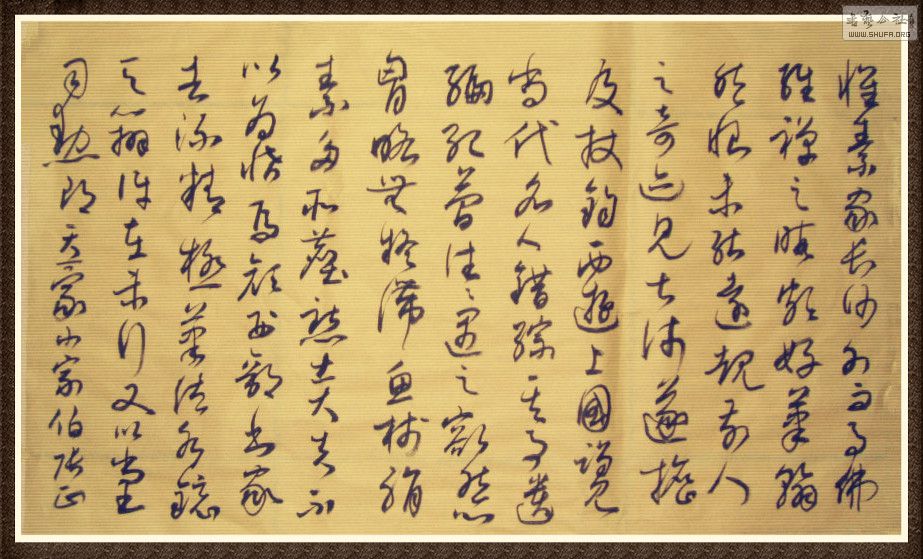 懷素家長沙幼而事佛
經禪之暇頗好筆翰
然恨未能遠覩前人
之奇迹見甚淺遂擔
笈杖錫西遊上國謁見
當代名人錯綜其事遺
編絕簡往往遇之豁然
胸略無疑滯魚牋絹
素多所塵點士大夫不
以為怪焉顏刑部書家
者流精極筆法水鏡
之辨許在末行又以尚
司勳郎盧象小宗伯張正
書藝公社
WWW.SHUFA.ORG